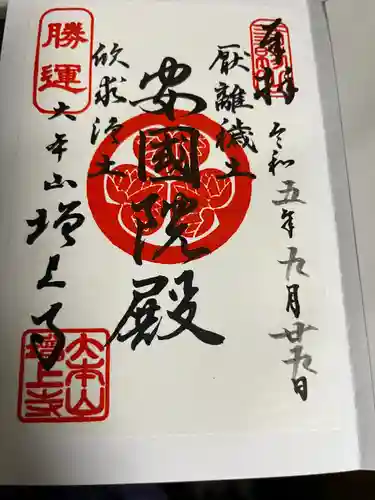 奉拝
令和五年九月廿五日
厭離穢土
安國院殿
欣求浄土
勝運
大本山
増上寺
大本山
増上寺